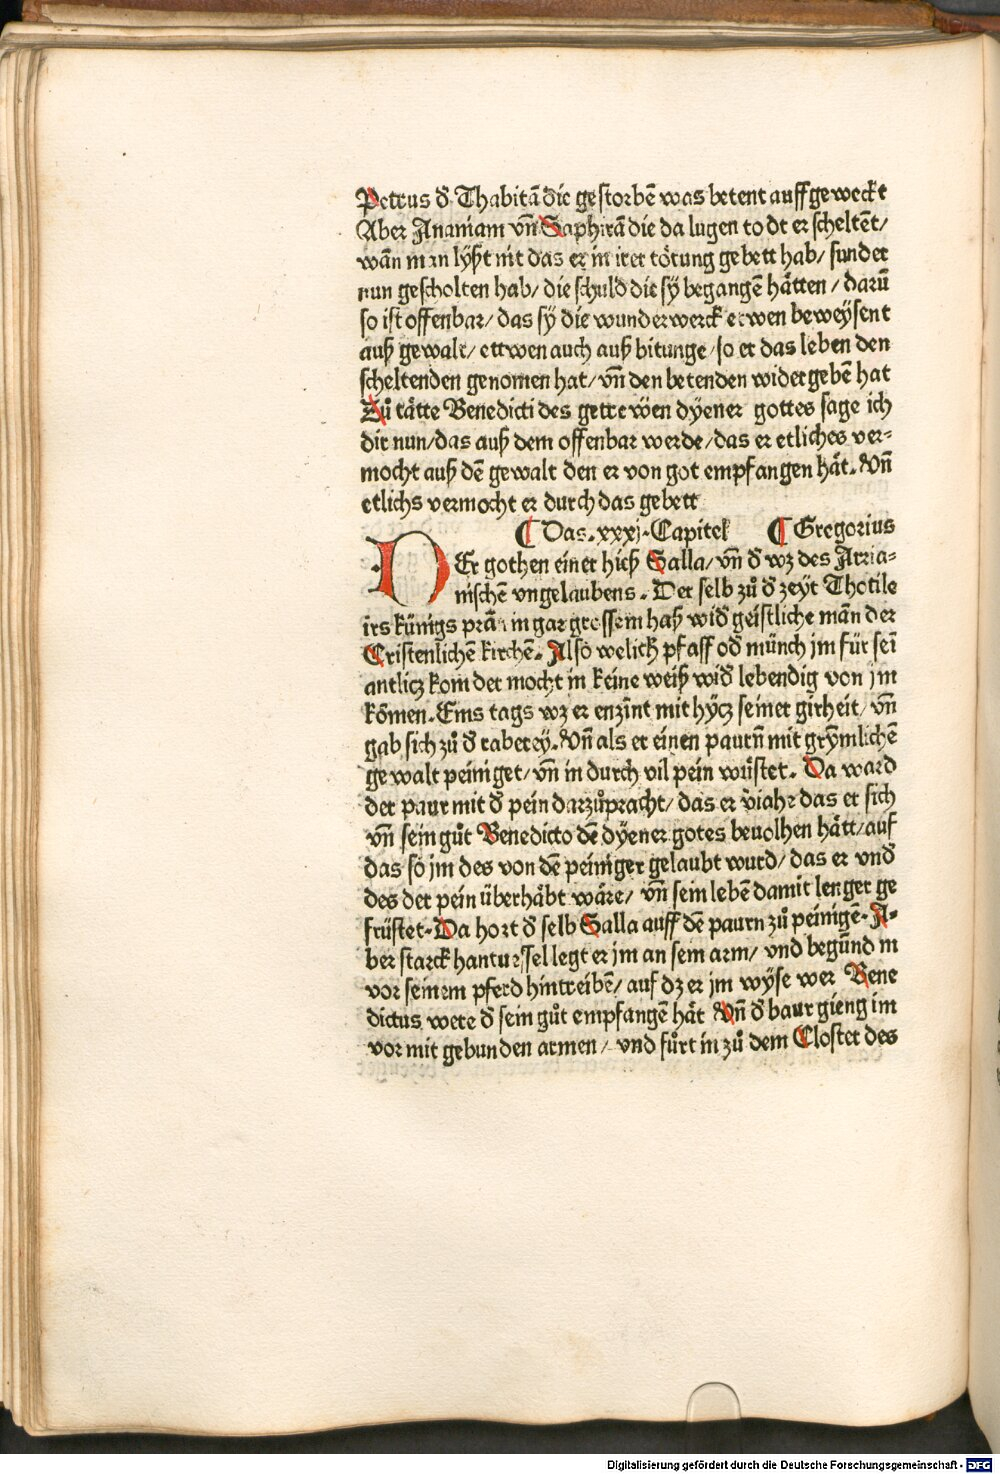 Petrus d̕ Thabitā die gestorbē was betent auffgeweckt
Aber Ananiam vn̄ Saphirā die da lugen todt er scheltēt/
wān man lyßt nit das er in irer tötung gebett hab/ sunder
nun gescholten hab/ die schuld die sÿ begangē hätten / darū
so ist offenbar/ das sÿ die wunderwerck etwen beweÿsent
auß gewalt/ ettwen auch auß bitunge/ so er das leben den
scheltenden genomen hat/ vn̄ den betenden widergebē hat
Zů tätte Benedicti des getrewen dyener gottes sage ich
dir nun/das auß dem offenbar werde/das er etliches ver⸗
mocht auß dē gewalt den er von got empfangen hät. Vn̄
etlichs vermocht er durch das gebett
¶ Das .xxxj. Capitel ¶ Gregorius
DEr gothen einer hieß Salla/ vn̄ d̕ wz des Arria⸗
nischē vngelaubens . Der selb zů d̕ zeyt Thotile
irs künigs pran in gar grossem haß wid̕ geistliche man der
Cristenlichē kirchē. Also welich pfaff od̕ münch jm für sei
antlicz kom der mocht in keine weiß wid̕ lebendig von jm
kōmen. Eins tags wz er enzint mit hÿcz seiner girheit/ vn̄
gab sich zů d̕ raberey. Vn̄ als er einen paurn̄ mit grÿmlichē
gewalt peiniget/ vn̄ in durch vil pein wüstet. Da ward
der paur mit d̕ pein darzůpracht/ das er v̕iahe das er sich
vn̄ sein gůt Benedicto dē dyener gotes beuolhen hätt/auf
das so jm des von dē peiniger gelaubt wurd/ das er vnd̕
des der pein überhäbt wäre/ vn̄ sein lebē damit lenger ge
früstet. Da hort d̕ selb Salla auff dē paurn zů peinigē. A⸗
ber starck hanturssel legt er jm an sein arm/ vnd begūnd in
vor seinem pferd hintreibē/ auf dz er jm wyse wer Bene
dictus were d̕ sein gůt empfangē hät Vn̄ d̕ baur gieng im
vor mit gebunden armen / vnd fůrt in zů dem Closter des
Digitalisierung gefördert durch die Deutsche Forschungsgemeinschaft - DFG